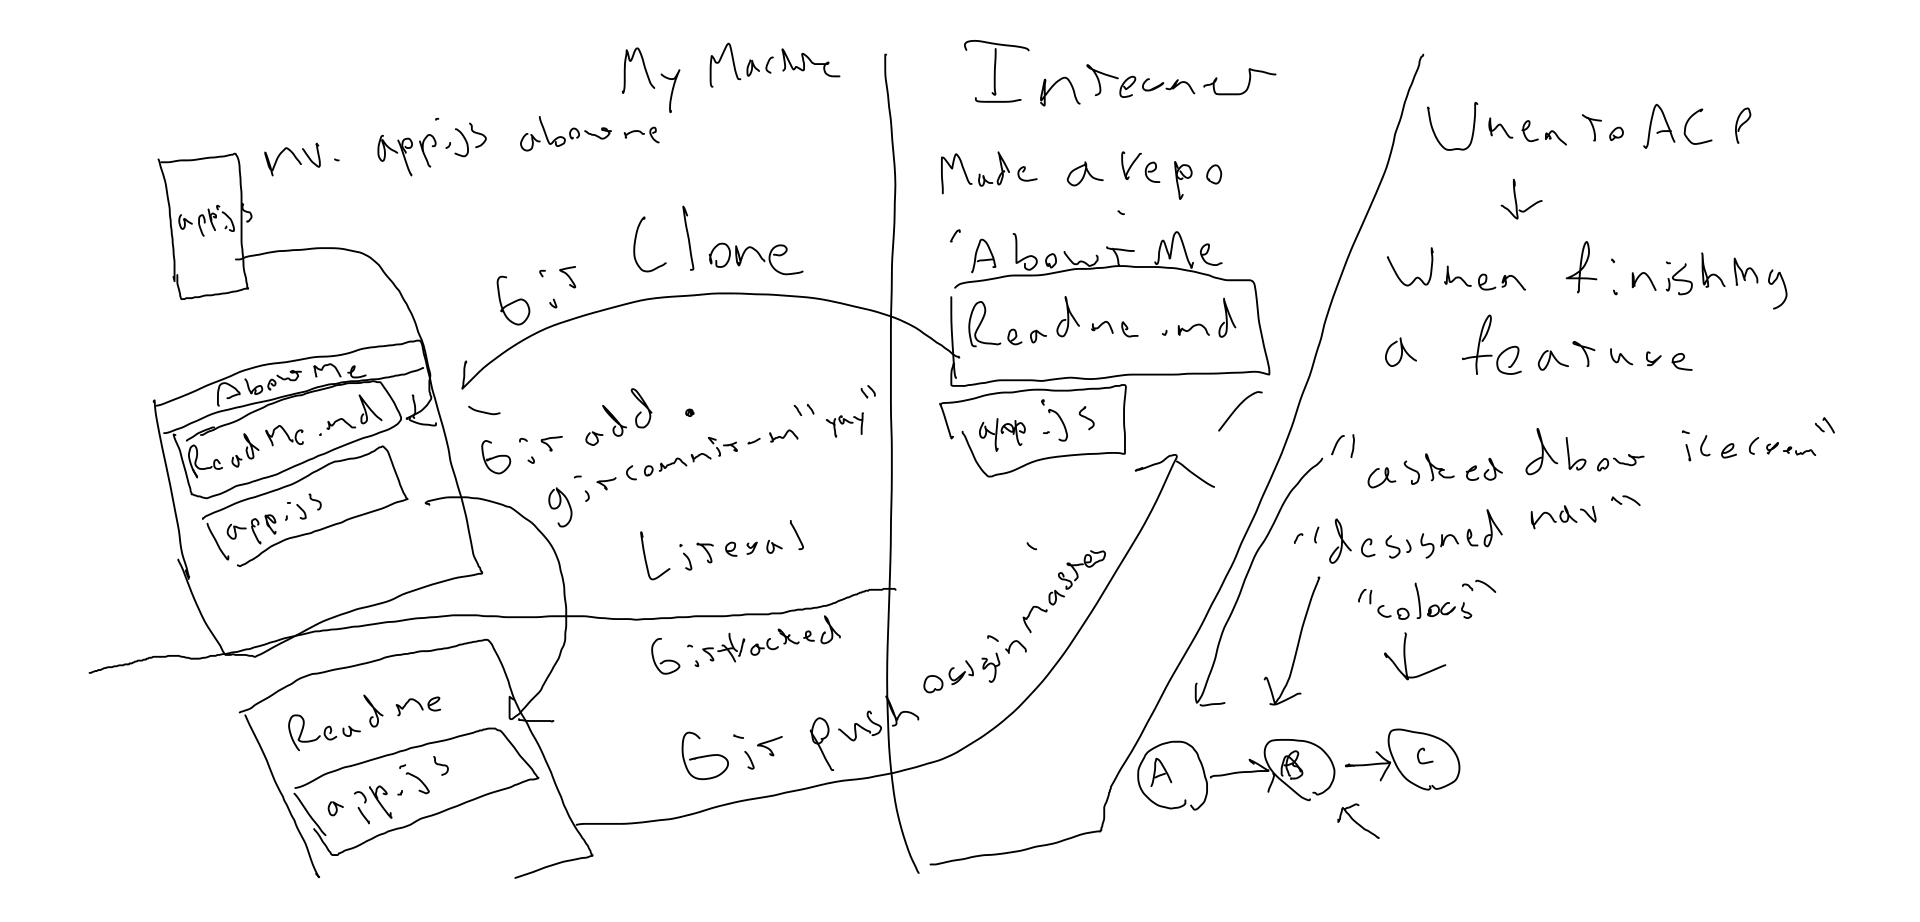 My Machine
mv. app.js aboutme
app.js
Git Clone
About Me
ReadMe.md
app.js
Git add .
git commit -m "yay"
Literal
Git tracked
Readme
app.js
Git push origin master
Internet
Made a repo
'About Me'
Readme.md
app.js
When to ACP
When finishing
a feature
"asked about icecream"
"designed nav"
"colors"
A
B
C